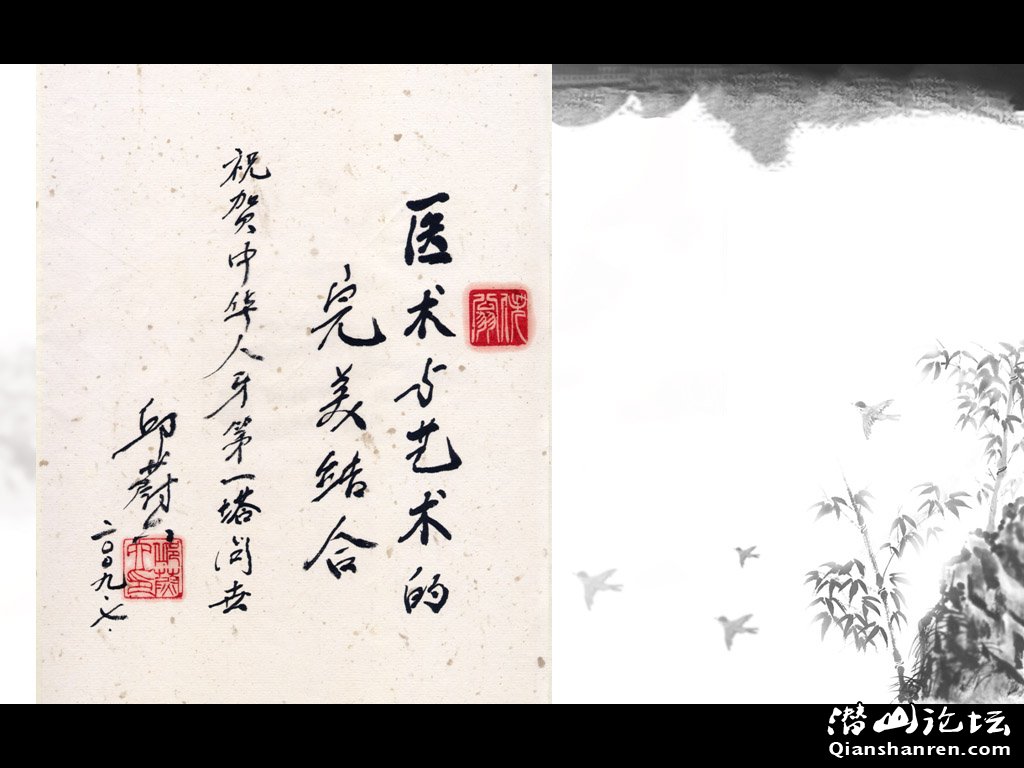 医术与艺术的
完美结合
祝贺中华人牙第一塔问世
邱蔚六
二〇〇九.七.
潜山论坛
Qianshanren.com